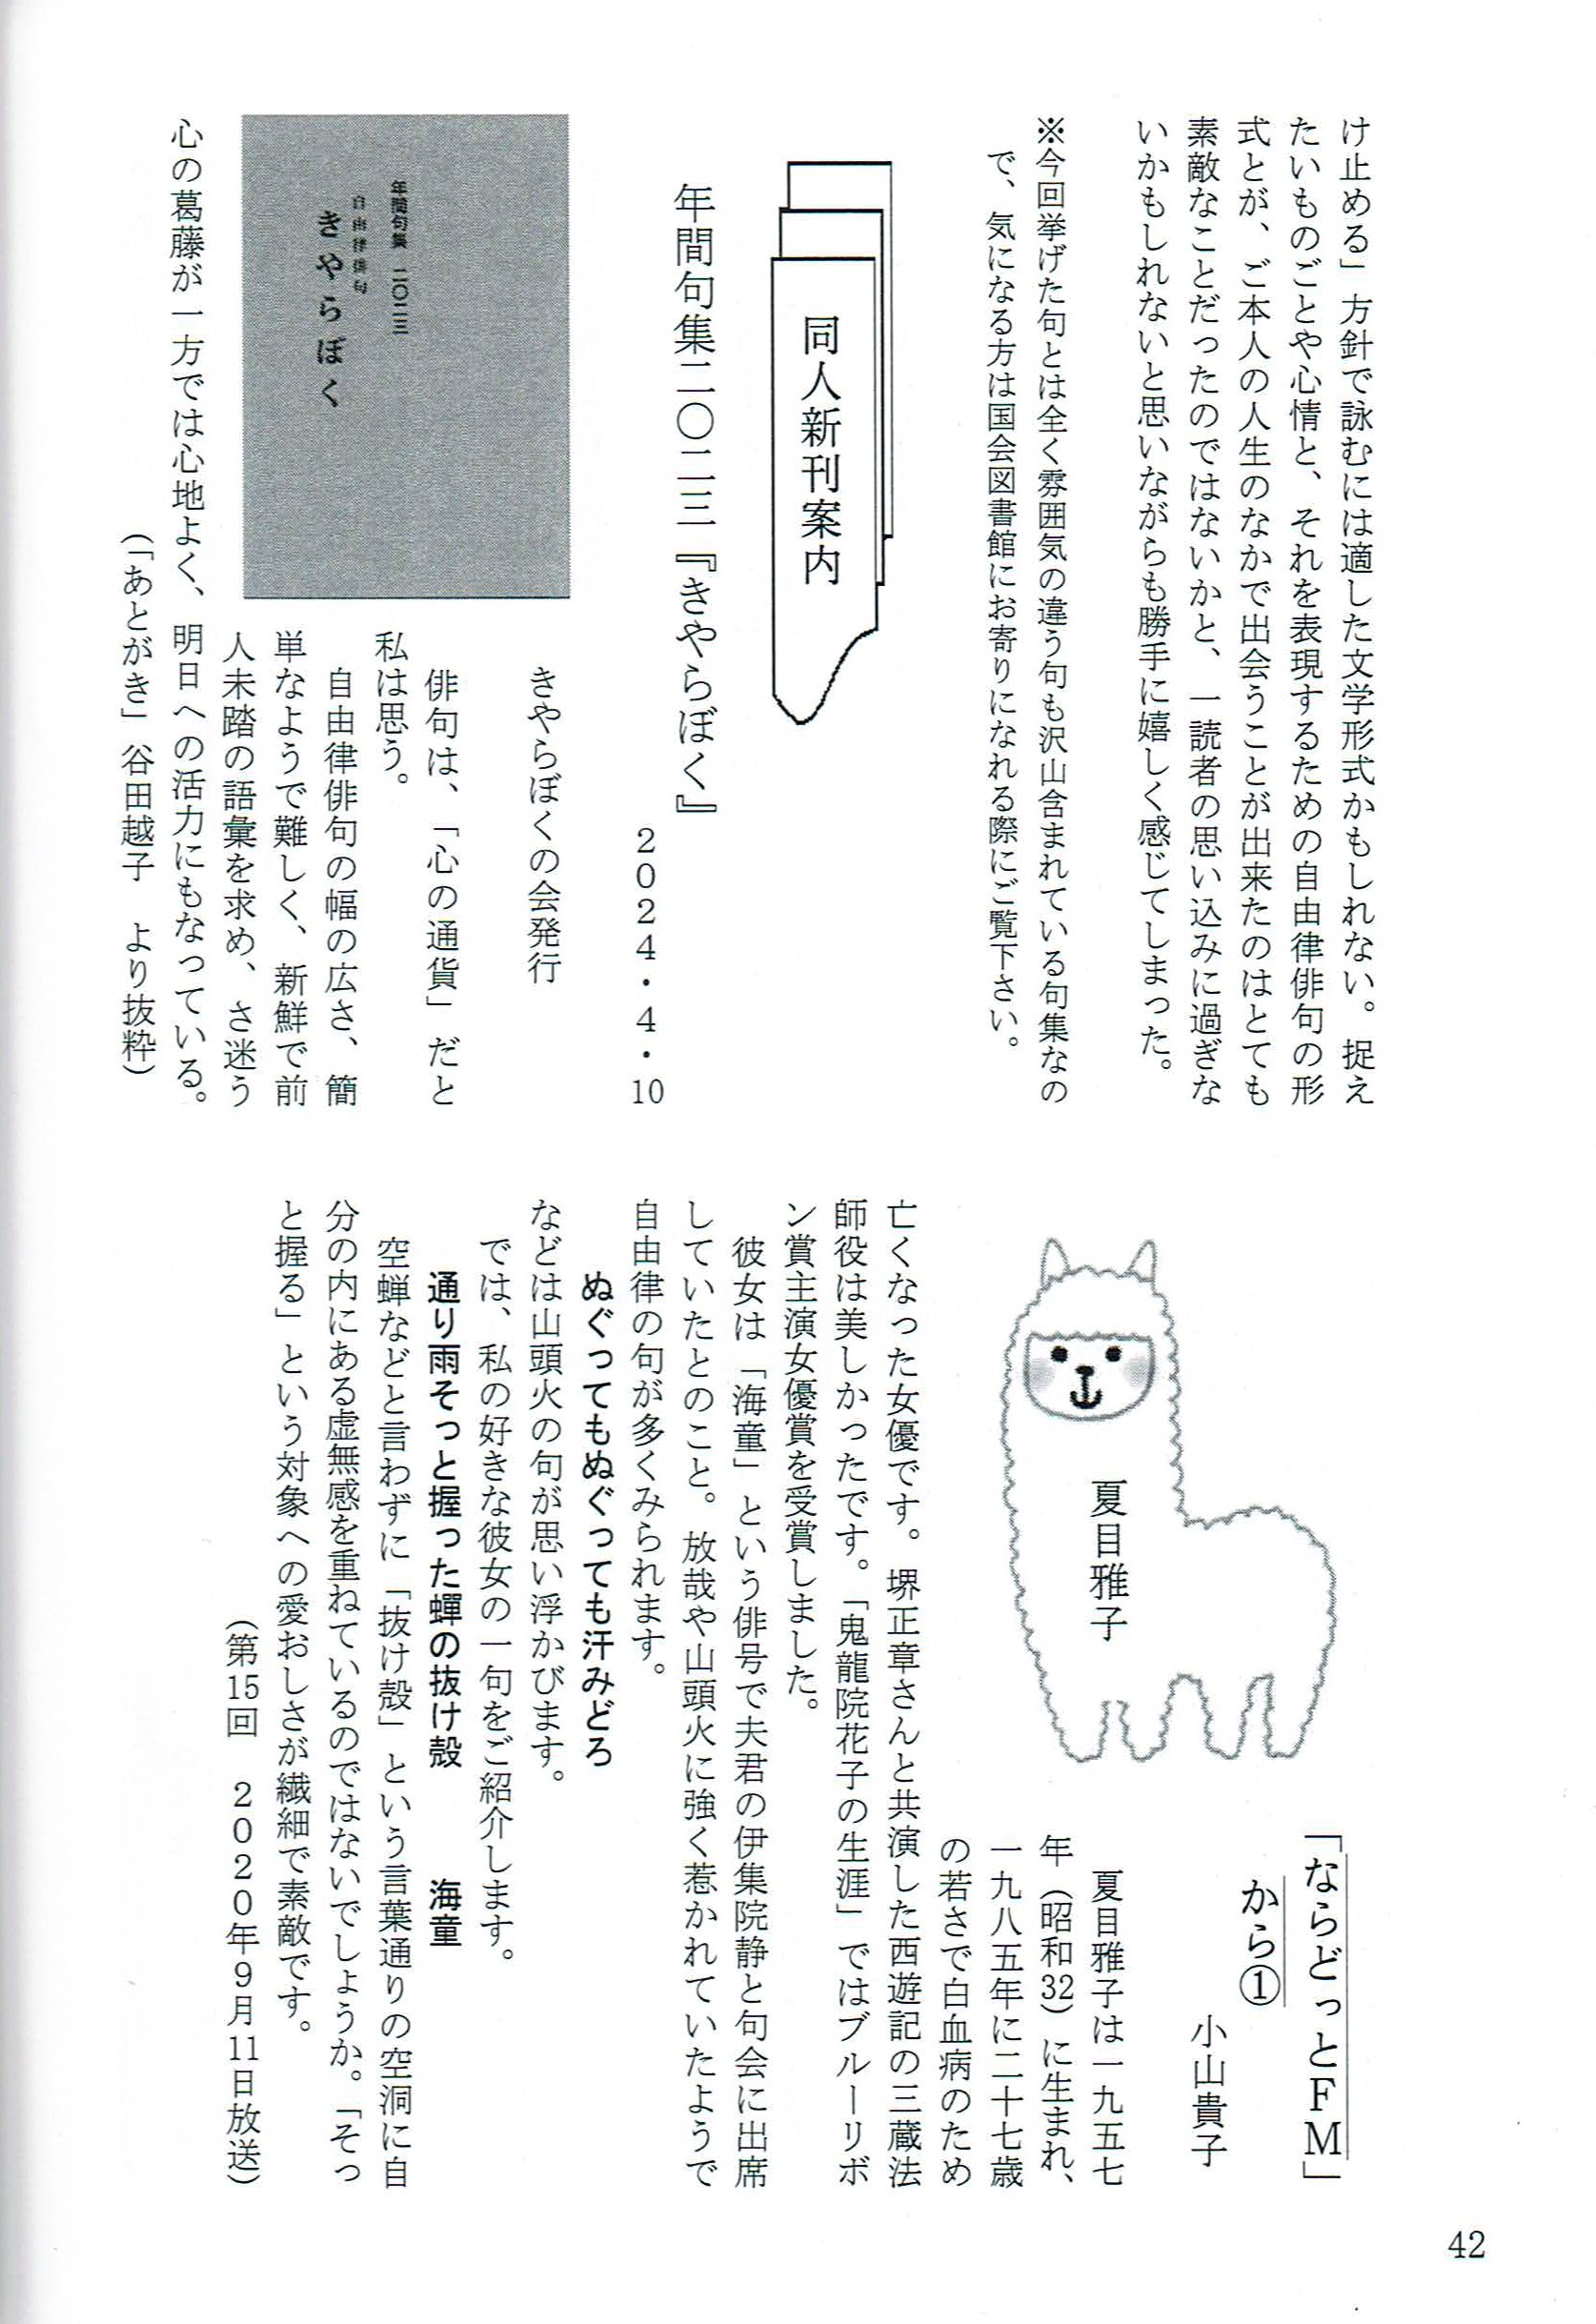 け止める」方針で詠むには適した文学形式かもしれない。捉え
たいものごとや心情と、それを表現するための自由律俳句の形
式とが、ご本人の人生のなかで出会うことが出来たのはとても
素敵なことだったのではないかと、一読者の思い込みに過ぎな
いかもしれないと思いながらも勝手に嬉しく感じてしまった。
※今回挙げた句とは全く雰囲気の違う句も沢山含まれている句集なの
で、気になる方は国会図書館にお寄りになれる際にご覧下さい。
同人新刊案内
年間句集二〇二三『きやらぼく』
2024・4・10
きやらぼくの会発行
年間句集 二〇二三
自由律俳句
きやらぼく
俳句は、「心の通貨」だと
私は思う。
自由律俳句の幅の広さ、簡
単なようで難しく、新鮮で前
人未踏の語彙を求め、さ迷う
心の葛藤が一方では心地よく、明日への活力にもなっている。
(「あとがき」谷田越子 より抜粋)
「ならどっとFM」
から①
小山貴子
夏目雅子
夏目雅子は一九五七
年(昭和32)に生まれ、
一九八五年に二十七歳
の若さで白血病のため
亡くなった女優です。堺正章さんと共演した西遊記の三蔵法
師役は美しかったです。「鬼龍院花子の生涯」ではブルーリボ
ン賞主演女優賞を受賞しました。
彼女は「海童」という俳号で夫君の伊集院静と句会に出席
していたとのこと。放哉や山頭火に強く惹かれていたようで
自由律の句が多くみられます。
ぬぐってもぬぐっても汗みどろ
などは山頭火の句が思い浮かびます。
では、私の好きな彼女の一句をご紹介します。
通り雨そっと握った蟬の抜け殻 海童
空蟬などと言わずに「抜け殻」という言葉通りの空洞に自
分の内にある虚無感を重ねているのではないでしょうか。「そっ
と握る」という対象への愛おしさが繊細で素敵です。
(第15回 2020年9月11日放送)
42